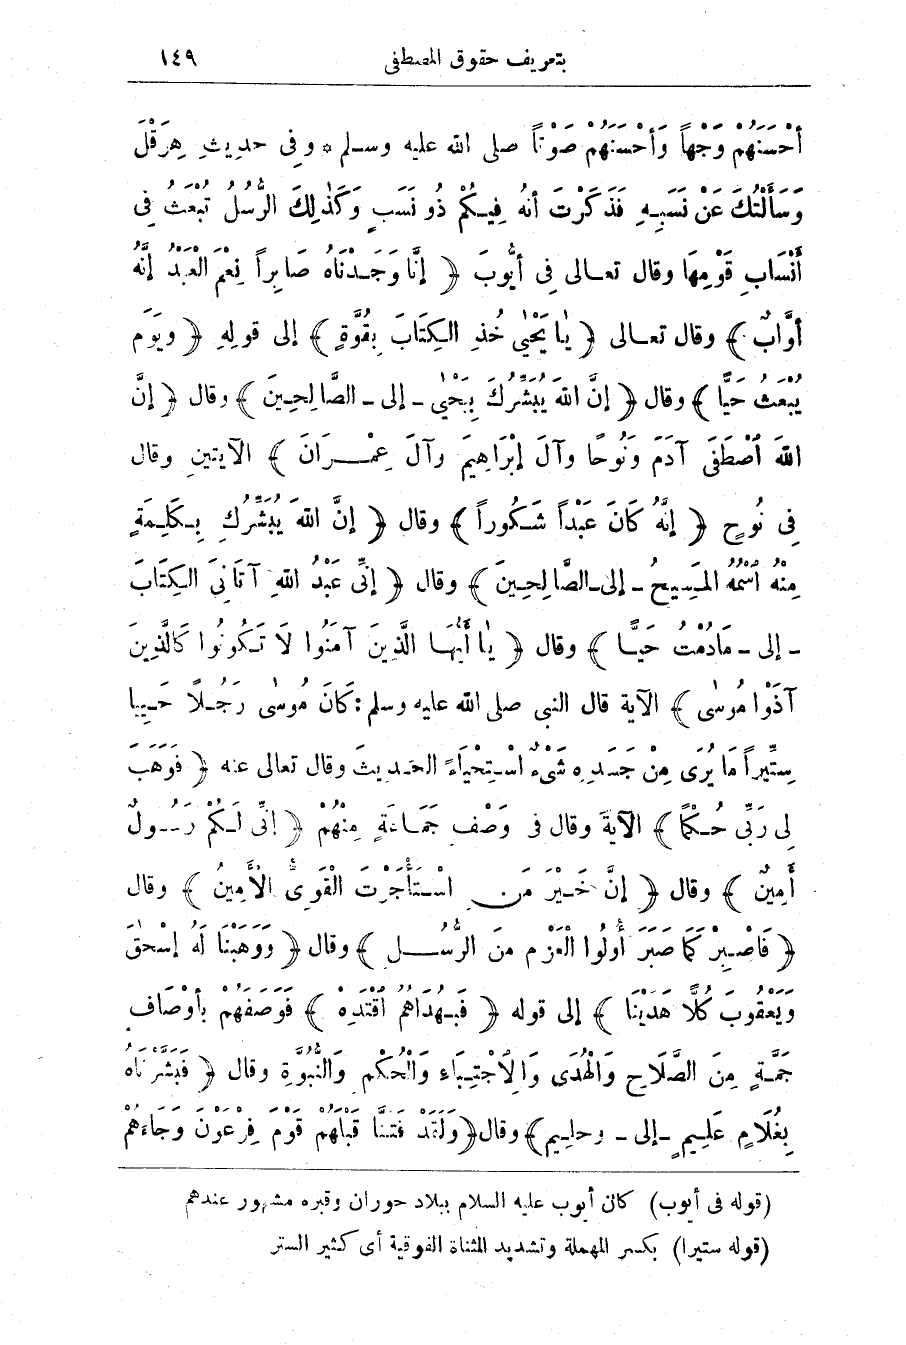 بتعريف حقوق المصطفى ١٤٩
أَحْسَنَهُمْ وَجْهاً وَأَحْسَنَهُمْ صَوْتاً صلى الله عليه وسلم * وفى حديثِ هِرَقْلَ
وَسَأَلْتُكَ عَنْ نَسَبِهِ فَذَكَرْتَ أنهُ فِيكُمْ ذُو نَسَبٍ وَكَذٰلِكَ الرُّسُلُ تُبْعَثُ فى
أَنْسَابِ قَوْمِهَا وقال تعالى فى أيُّوبَ ﴿ إِنَّا وَجَدْنَاهُ صَابِراً نِعْمَ الْعَبْدُ إنَّهُ
أوَّابٌ ﴾ وقال تعالى ﴿ يٰا يَحْيٰى خُذِ الكِتَابَ بِقُوَّةٍ ﴾ إلى قولِهِ ﴿ ويَوْمَ
يُبْعَثُ حَيًّا ﴾ وقال ﴿ إنَّ اللهَ يُبَشِّرُكَ بِيَحْيٰى - إلى - الصَّالِحِينَ ﴾ وقال ﴿ إنَّ
اللهَ ٱصْطَفَى آدَمَ وَنُوحًا وآلَ إبْرَاهِيمَ وآلَ عِمْرَانَ ﴾ الآيتينِ وقال
فى نُوحٍ ﴿ إنَّهُ كَانَ عَبْداً شَكُوراً ﴾ وقال ﴿ إنَّ اللهَ يُبَشِّرُكِ بِكَلِمَةٍ
مِنْهُ ٱسْمُهُ المَسِيحُ - إلى - الصَّالِحِينَ ﴾ وقال ﴿ إنِّى عَبْدُ اللهِ آتَانِىَ الكِتَابَ
- إلى - مَادُمْتُ حَيًّا ﴾ وقال ﴿ يٰا أَيُّهَا الَّذِينَ آمَنُوا لَا تَكُونُوا كَالَّذِينَ
آذَوْا مُوسٰى ﴾ الآية قال النبى صلى الله عليه وسلم : كَانَ مُوسٰى رَجُلاً حَيِيا
سِتِّيراً مَا يُرَى مِنْ جَسَدِهِ شَىْءٌ اسْتِحْيَاءً الحديثَ وقال تعالى عنه ﴿ فَوَهَبَ
لِى رَبِّى حُكْمًا ﴾ الآيةَ وقال فى وَصْفِ جَمَاعَةٍ مِنْهُمْ ﴿ إنِّى لَكُمْ رَسُولٌ
أَمِينٌ ﴾ وقال ﴿ إنَّ خَيْرَ مَنِ اسْتَأْجَرْتَ الْقَوِىُّ الْأَمِينُ ﴾ وقال
﴿ فَاصْبِرْ كَمَا صَبَرَ أُولُوا الْعَزْمِ مِنَ الرُّسُلِ ﴾ وقال ﴿ وَوَهَبْنَا لَهُ إسْحٰقَ
وَيَعْقُوبَ كُلًّا هَدَيْنَا ﴾ إلى قوله ﴿ فَبِهُدَاهُمُ ٱقْتَدِهْ ﴾ فَوَصَفَهُمْ بأوْصَافٍ
جَمَّةٍ مِنَ الصَّلَاحِ وَالْهُدَى وَالِاجْتِبَاءِ وَالْحُكْمِ وَالنُّبُوَّةِ وقال ﴿ فَبَشَّرْنَاهُ
بِغُلَامٍ عَلِيمٍ - إلى - وحليمٍ ﴾ وقال ﴿ وَلَقَدْ فَتَنَّا قَبْلَهُمْ قَوْمَ فِرْعَوْنَ وَجَاءَهُمْ
(قوله فى أيوب) كان أيوب عليه السلام ببلاد حوران وقبره مشهور عندهم
(قوله ستيرا) بكسر المهملة وتشديد المثناة الفوقية أى كثير الستر